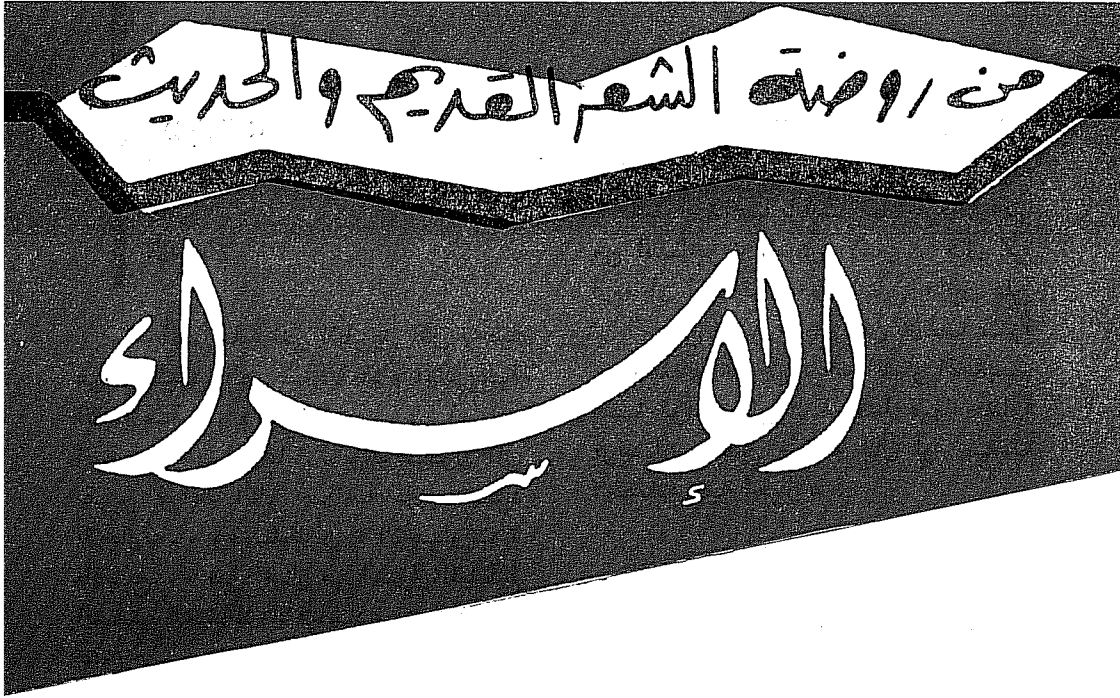 من روضة الشعر القديم والحديث
الإسراء